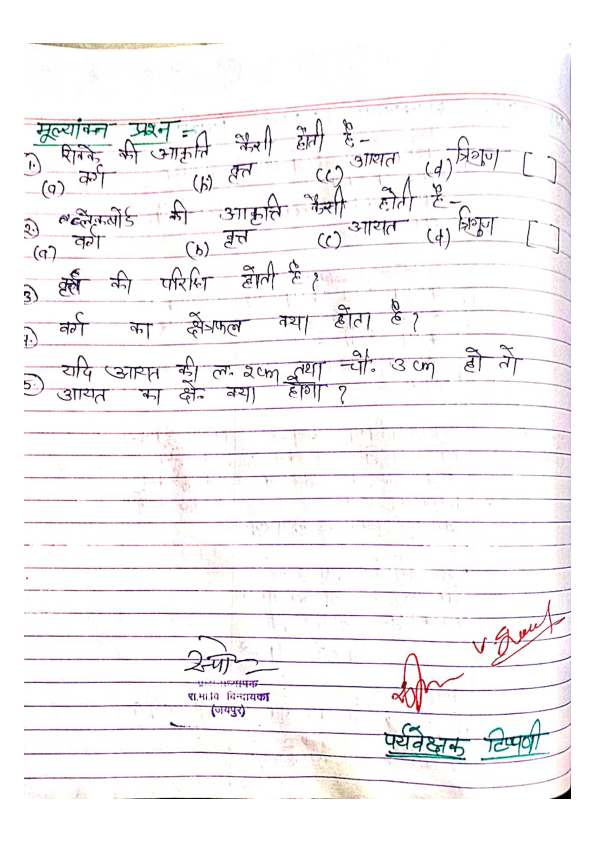 मूल्यांकन प्रश्न :-
1. सिक्के की आकृति कैसी होती है -
(a) वर्ग (b) वृत्त (c) आयत (d) त्रिभुज [ ]
2. ब्लैकबोर्ड की आकृति कैसी होती है -
(a) वर्ग (b) वृत्त (c) आयत (d) त्रिभुज [ ]
3) वृत्त की परिधि होती है ?
4.) वर्ग का क्षेत्रफल क्या होता है ?
5. यदि आयत की ल. 2cm तथा चौ. 3 cm हो तो
आयत का क्षे. क्या होगा ?
v. Good
रा.मा.वि. बिन्दायका
(जयपुर)
पर्यवेक्षक टिप्पणी